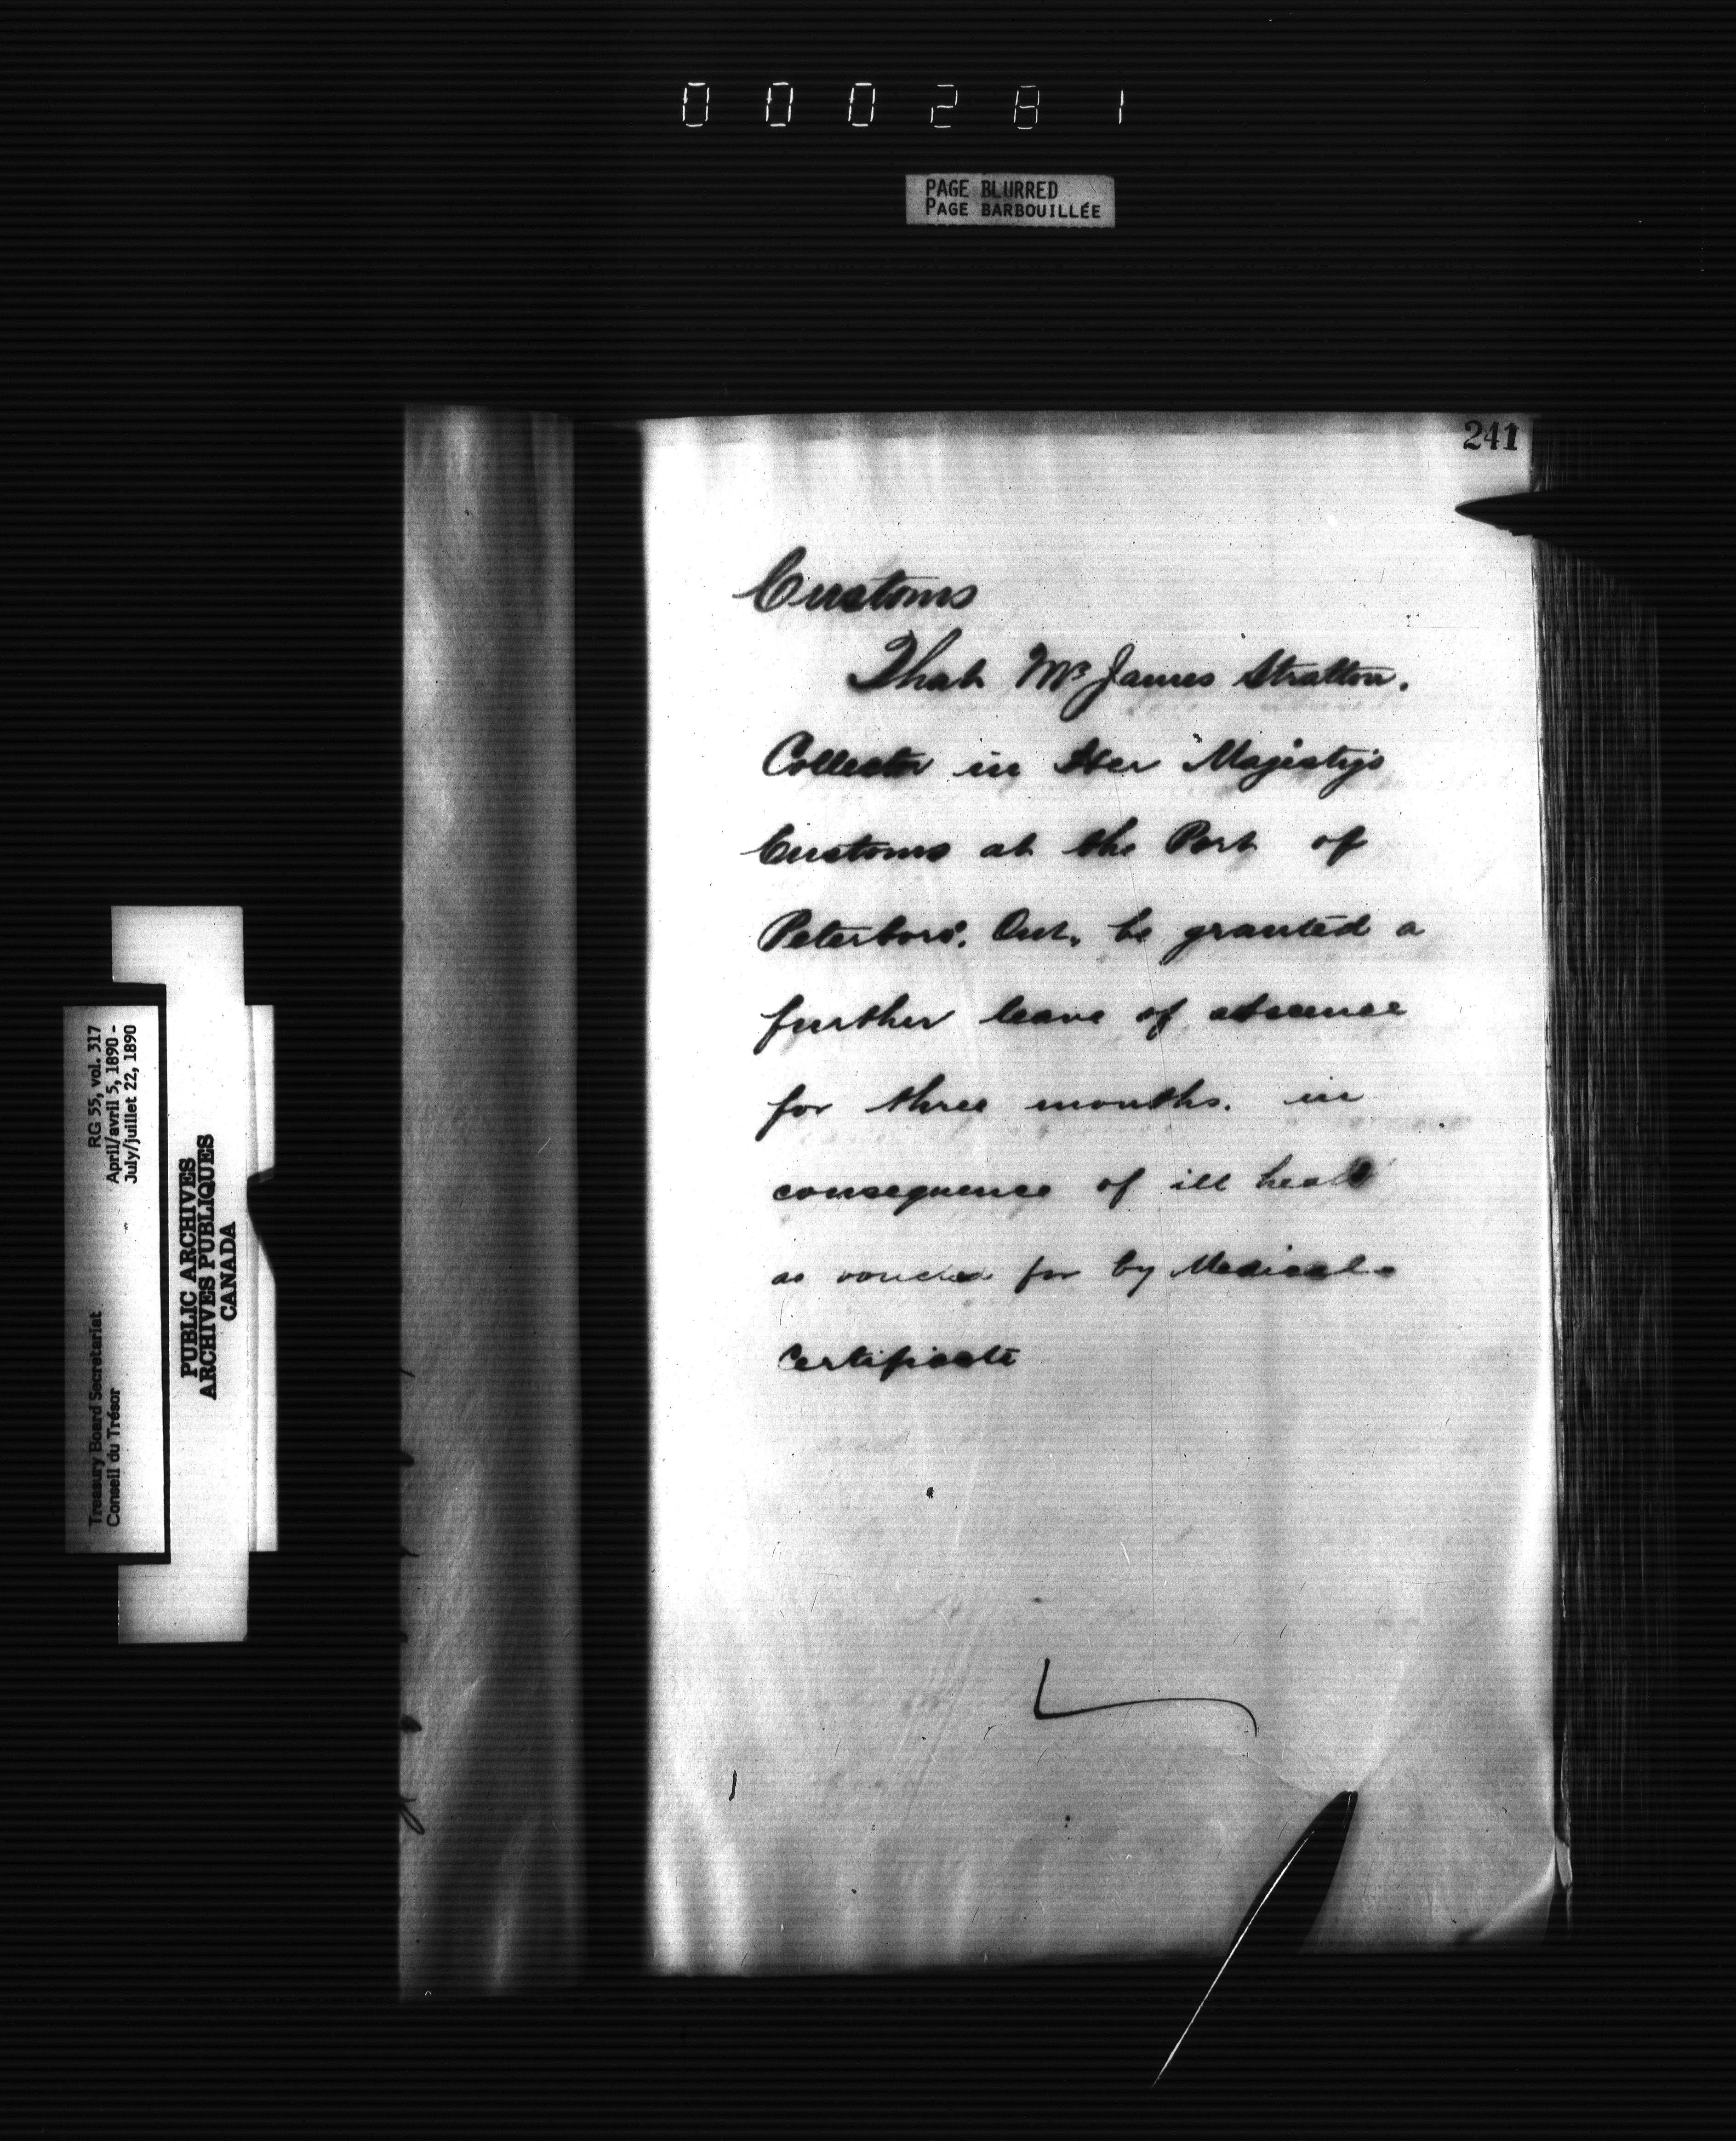 000281
PAGE BLURRED
PAGE BARBOUILLÉE
241
Customs
That Mr James Stratton.
Collector in Her Majesty's
Customs at the Port of
Peterboro'. Ont. be granted a
further leave of absence
for three months. in
consequence of ill health
as vouched for by Medical
Certificate
RG 55, vol. 317
April/avril 5, 1890 -
July/juillet 22, 1890
Treasury Board Secretariat
Conseil du Trésor
PUBLIC ARCHIVES
ARCHIVES PUBLIQUES
CANADA